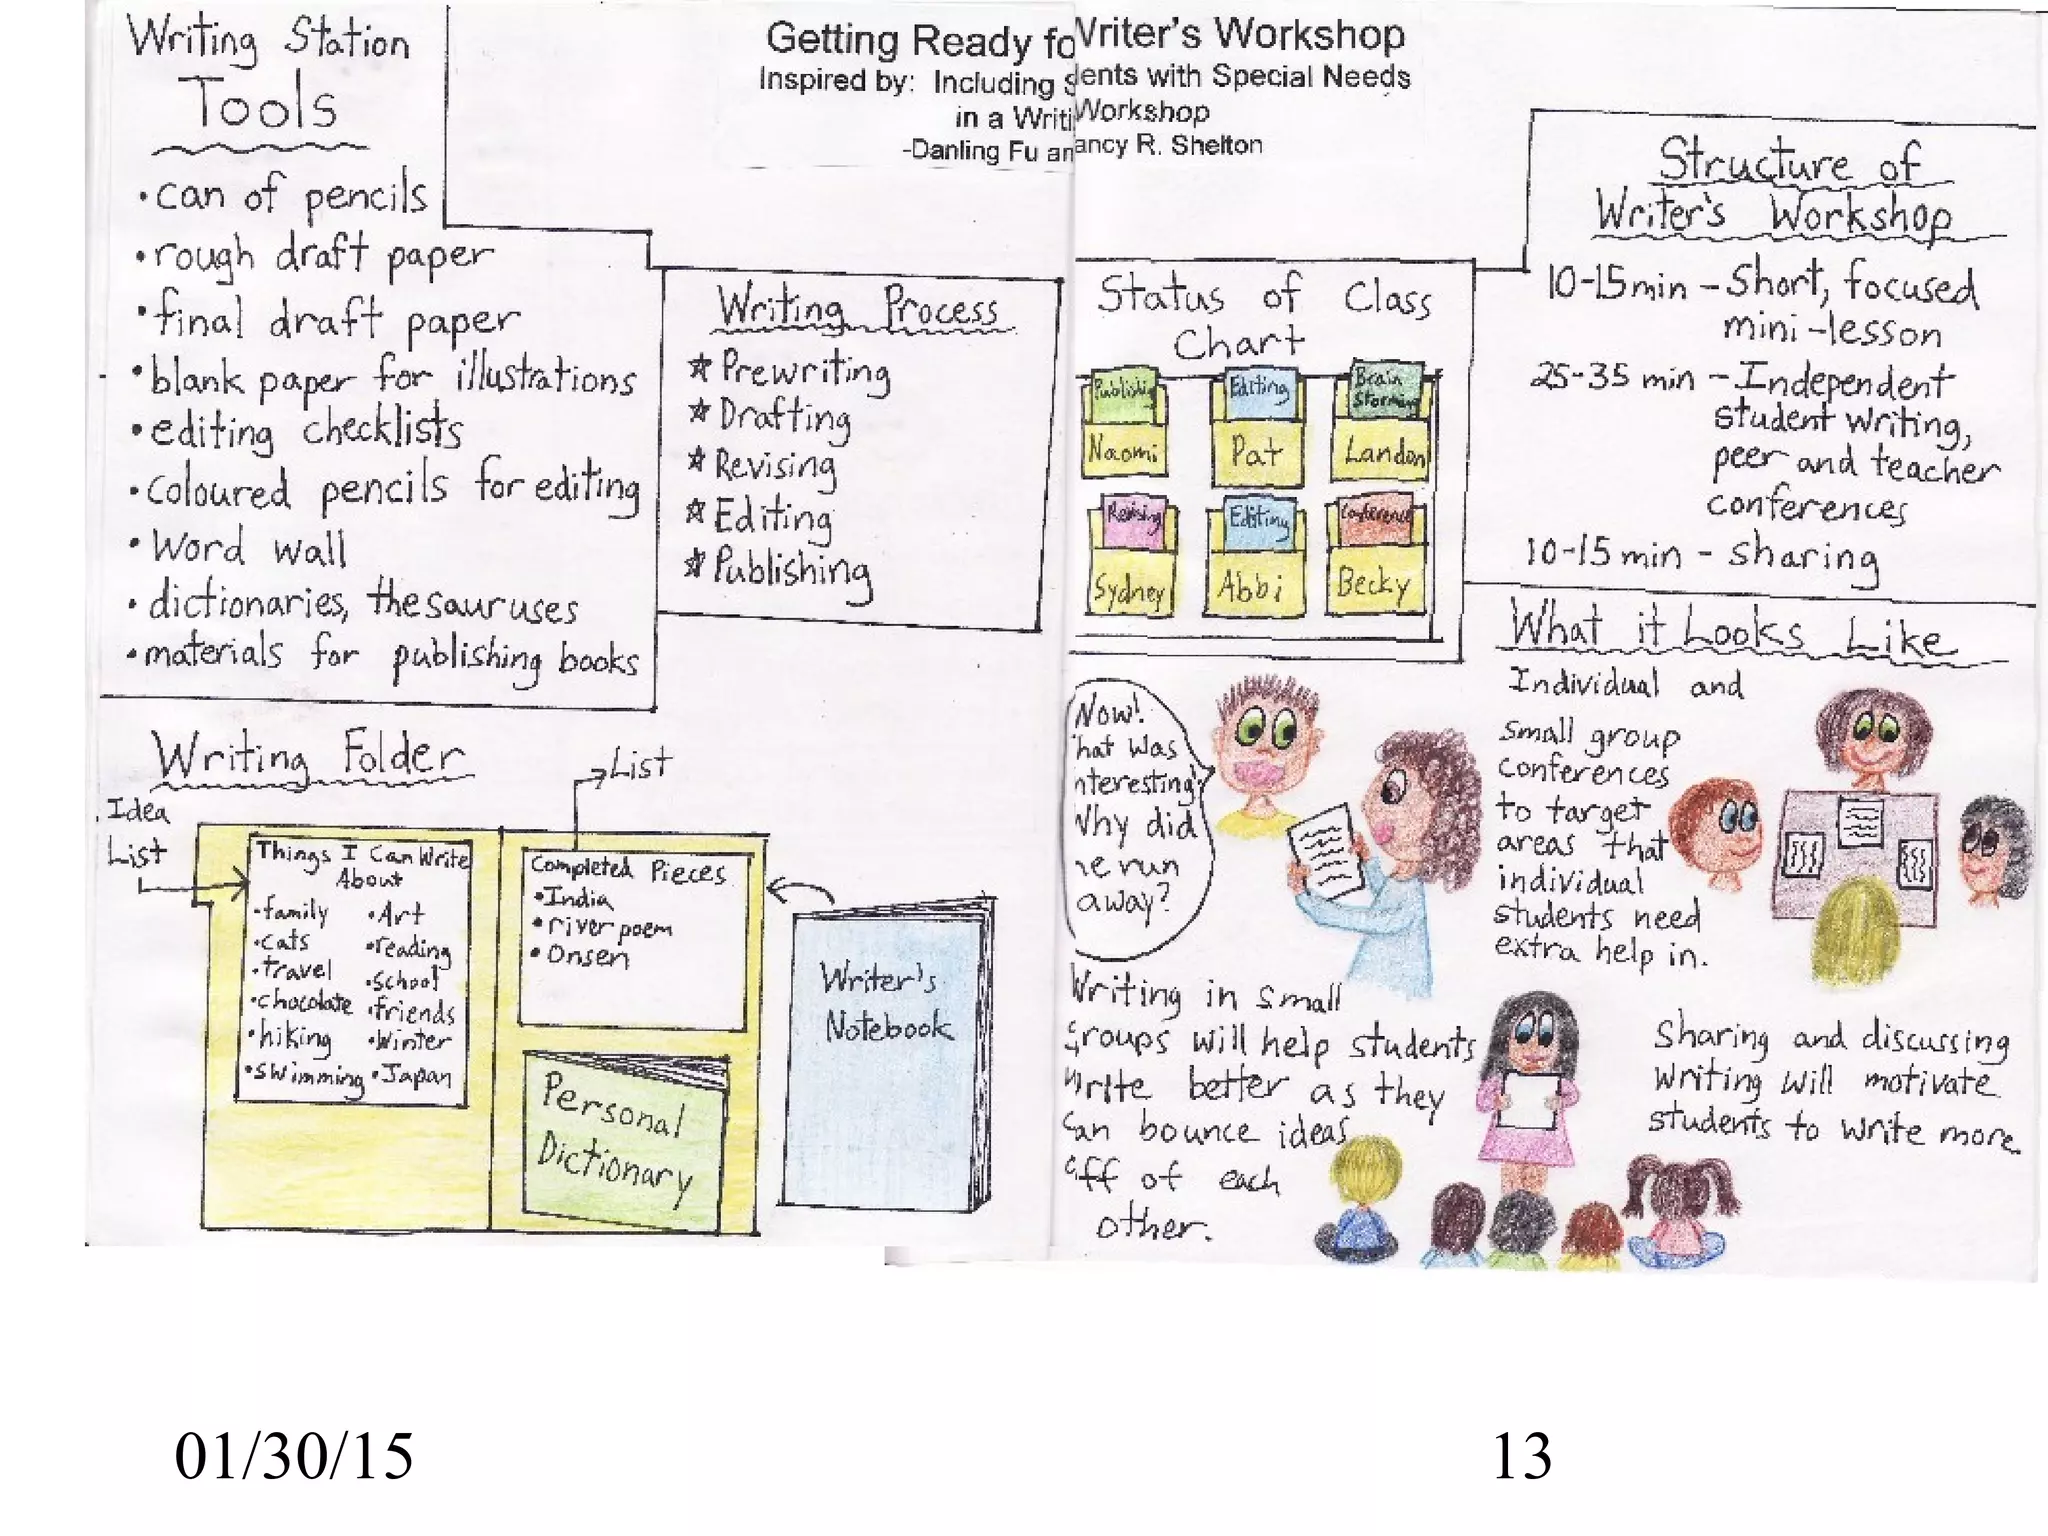 Writing Station
Tools
• can of pencils
• rough draft paper
• final draft paper
• blank paper for illustrations
• editing checklists
• coloured pencils for editing
• Word wall
• dictionaries, thesauruses
• materials for publishing books
Getting Ready fo Writer's Workshop
Inspired by: Including S dents with Special Needs
in a Writi Workshop
-Danling Fu an ancy R. Shelton
Writing Process
☆ Prewriting
☆ Drafting
☆ Revising
☆ Editing
☆ Publishing
Status of Class
Chart
Publishing
Naomi
Editing
Pat
Brain
Storming
Landon
Revising
Sydney
Editing
Abbi
Conference
Becky
Structure of
Writer's Workshop
10-15 min - Short, focused
mini-lesson
25-35 min - Independent
student writing,
peer and teacher
conferences
10-15 min - sharing
Writing Folder
Idea
List
List
Things I Can Write
About
• family • Art
• cats • reading
• travel • School
• chocolate • friends
• hiking • Winter
• swimming • Japan
Completed Pieces
• India
• river poem
• Onsen
Personal
Dictionary
Writer's
Notebook
Wow!
hat was
nteresting!
Why did
he run
away?
Writing in small
groups will help students
write better as they
can bounce ideas
off of each
other.
What it Looks Like
Individual and
small group
conferences
to target
areas that
individual
students need
extra help in.
Sharing and discussing
writing will motivate
students to write more.
01/30/15
13